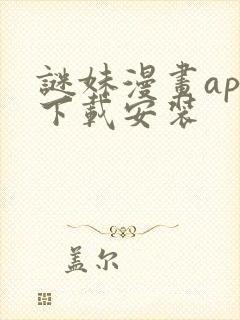 謎妹漫畫ap
下載安裝
盖尔